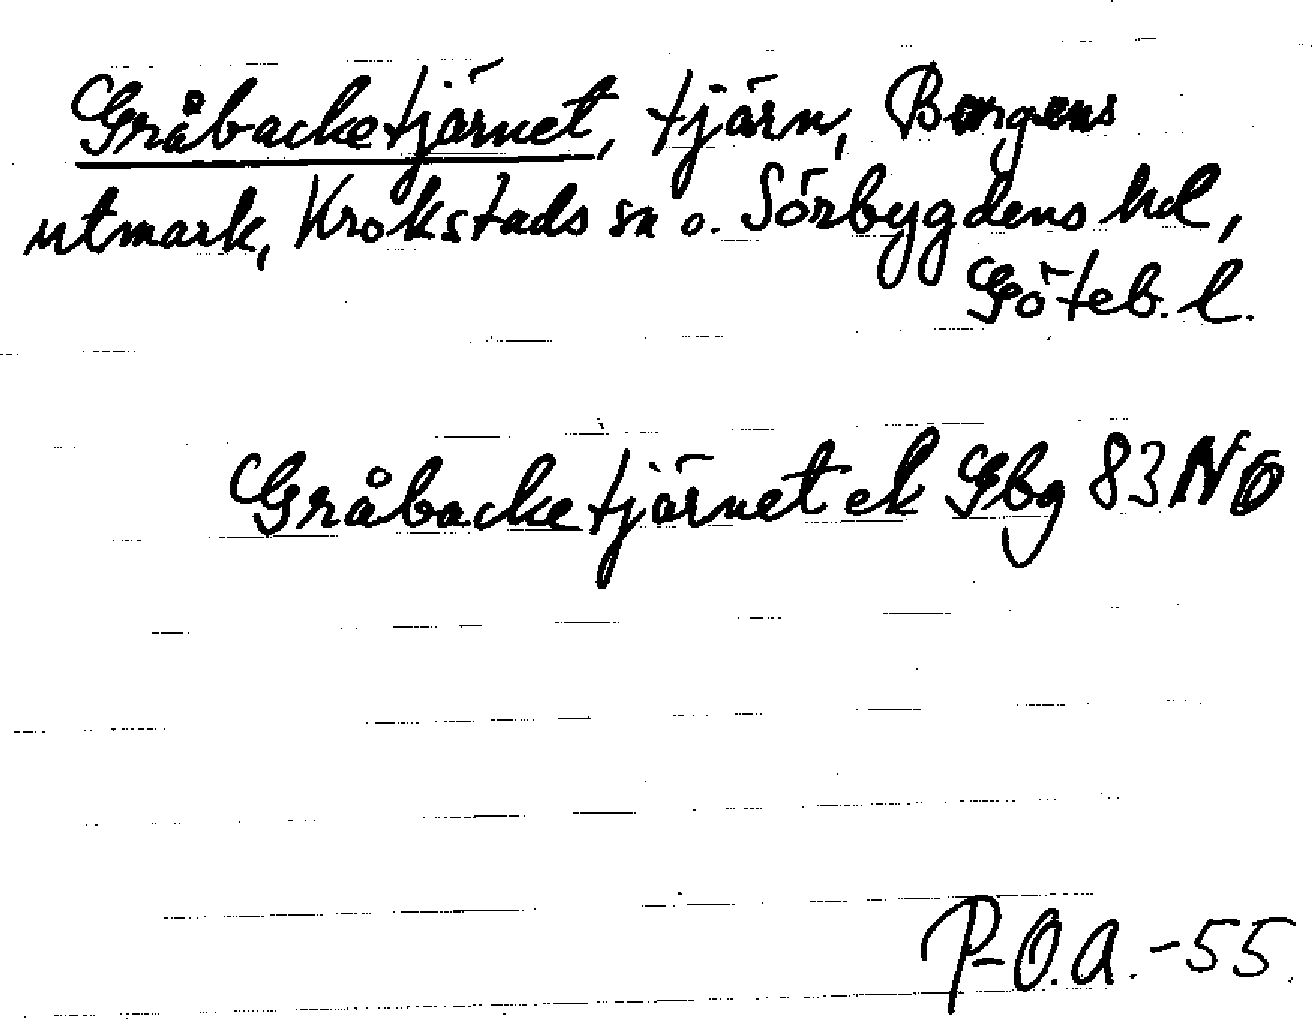 Gråbacketjärnet, tjärn, Borgens
utmark, Krokstads sn o. Sörbygdens hd,
Göteb. l.
Gråbacketjärnet ek Gbg 83 NO
P-O.A.-55.